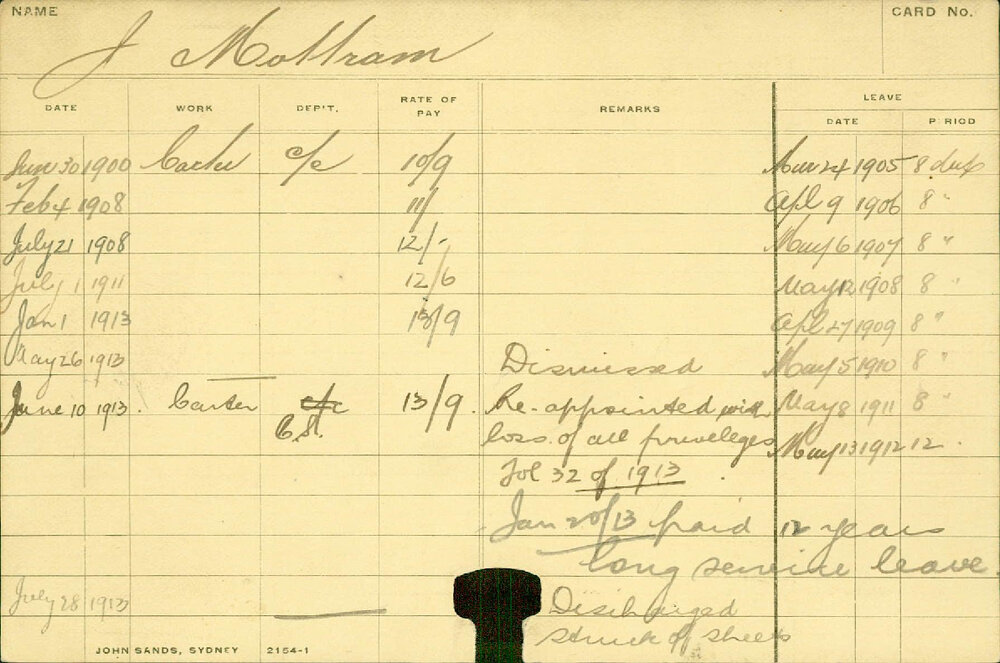 NAME
CARD No.
J Mottram
DATE WORK DEP'T. RATE OF PAY REMARKS LEAVE
DATE PERIOD
Jun 30 1900 Carter c/c 10/9 24 1905 8 days
Feb 4 1908 11/ Apl 9 1906 8 "
July 21 1908 12/- May 6 1907 8 "
July 1 1911 12/6 May 12 1908 8 "
Jan 1 1913 13/9 Apl 27 1909 8 "
May 26 1913 Dismissed May 5 1910 8 "
June 10 1913. Carter c/c 13/9. Re-appointed with May 8 1911 8 "
loss of all privileges May 13 1912 12.
Fol 32 of 1913
Jan 20/13 paid 12 years
long service leave.
July 28 1913 Discharged
struck of sheets
JOHN SANDS, SYDNEY 2154-1